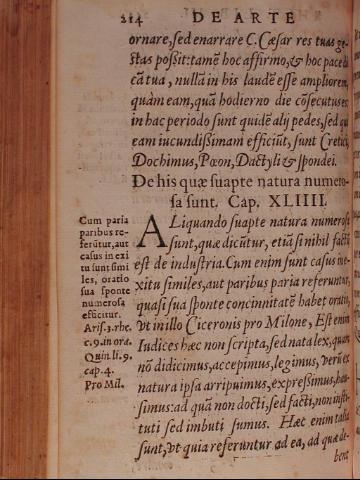 214 DE ARTE
ornare, sed enarrare C. Cæsar res tuas ge-
stas possit: tamē hoc affirmo, & hoc pace di
cā tua, nullā in his laudē esse ampliorem,
quàm eam, quā hodierno die cōsecutus es:
in hac periodo sunt quidē alij pedes, sed qui
eam iucundissimam efficiūt, sunt Cretici,
Dochimus, Pæon, Dactyli & spondei.
De his quæ suapte natura numero-
sa sunt. Cap. XLIIII.
ALiquando suapte natura numerosa
sunt, quæ dicūtur, etiā si nihil factū
est de industria. Cum enim sunt casus in e-
xitu similes, aut paribus paria referuntur,
quasi sua sponte concinnitatē habet oratio,
vt in illo Ciceronis pro Milone, Est enim
Iudices hæc non scripta, sed nata lex, quam
nō didicimus, accepimus, legimus, verū ex
natura ipsa arripuimus, expressimus, hau-
simus: ad quā non docti, sed facti, non insti-
tuti sed imbuti sumus. Hæc enim talia
sunt, vt quia referuntur ad ea, ad quæ de-
bent
Cum paria
paribus re-
ferūtur, aut
casus in exi
tu sunt simi
les, oratio
sua sponte
numerosa
efficitur.
Aris. 3. rhe.
c. 9. in ora.
Quin. li. 9.
cap. 4.
Pro Mil.